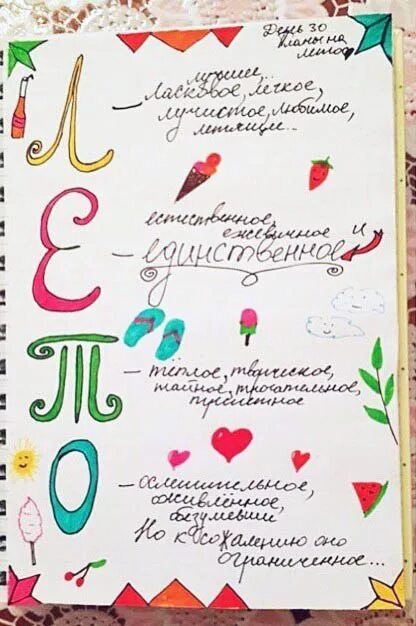 День 30
Планы на
лето
Л
лучшее...
– ласковое, легкое,
лучистое, любимое,
летящее...
Е
естественное,
ежевичное и
– единственное
Т
– тёплое, творческое,
тайное, трогательное,
трепетное
О
– ослепительное,
оживлённое,
безумевший
Но к сожалению оно
ограниченное...